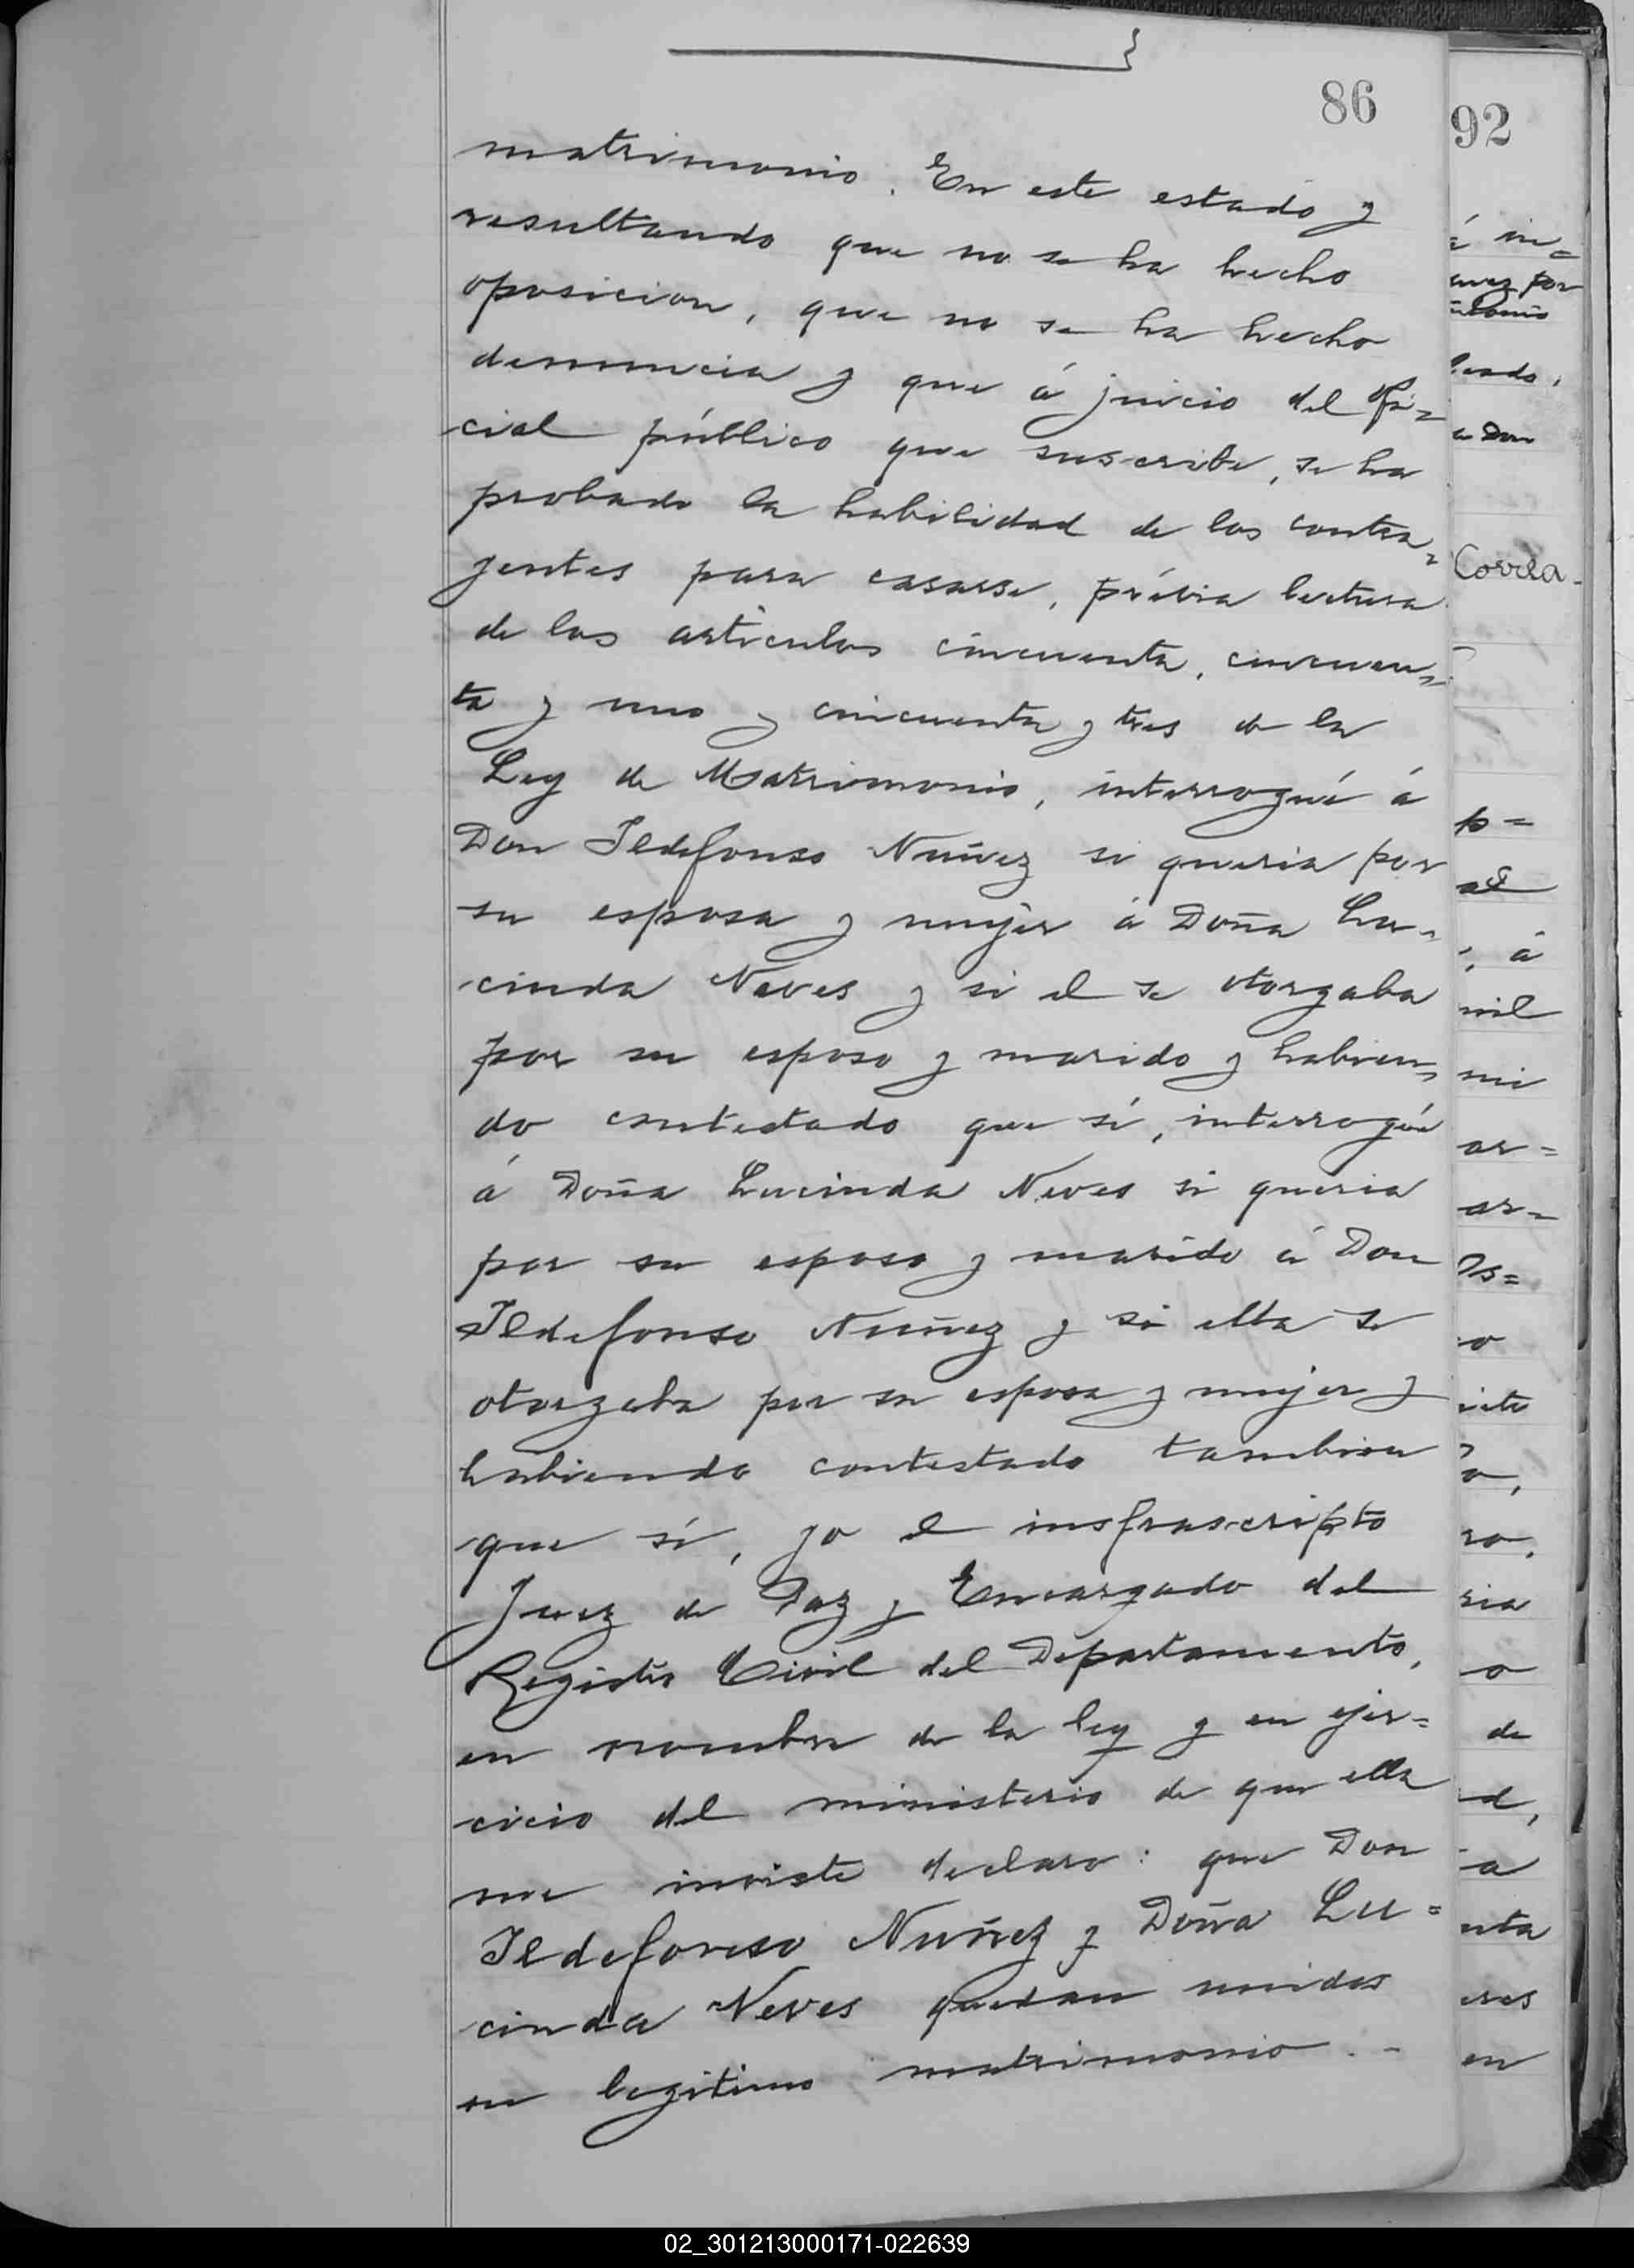 86
matrimonio. En este estado y
resultando que no se ha hecho
oposicion, que no se ha hecho
denuncia y que á juicio del Ofi=
cial público que suscribe, se ha
probado la habilidad de los contra=
yentes para casarse, prévia lectura
de los articulos cincuenta, cincuen=
ta y uno y cincuenta y tres de la
Ley de Matrimonio, interrogué á
Don Ildefonso Nuñez si queria por
su esposa y mujer á Doña Lu=
cinda Neves y si el se otorgaba
por su esposo y marido y habien=
do contestado que sí, interrogué
á Doña Lucinda Neves si queria
por su esposo y marido á Don
Ildefonso Nuñez y si ella se
otorgaba por su esposa y mujer y
habiendo contestado tambien
que sí, yo el insfrascripto
Juez de Paz y Encargado del
Registro Civil del Departamento,
en nombre de la ley y en ejer=
cicio del ministerio de que ella
me inviste declaro: que Don
Ildefonso Nuñez y Doña Lu=
cinda Neves quedan unidos
en legitimo matrimonio.-
92
á in=
uez por
ntonio
leado,
a Don
Correa
p=
al
, á
mil
mi
ar=
ar=
Os=
o
iete
o,
ro,
ria
o
de
d,
a
nta
eres
en
02_301213000171-022639